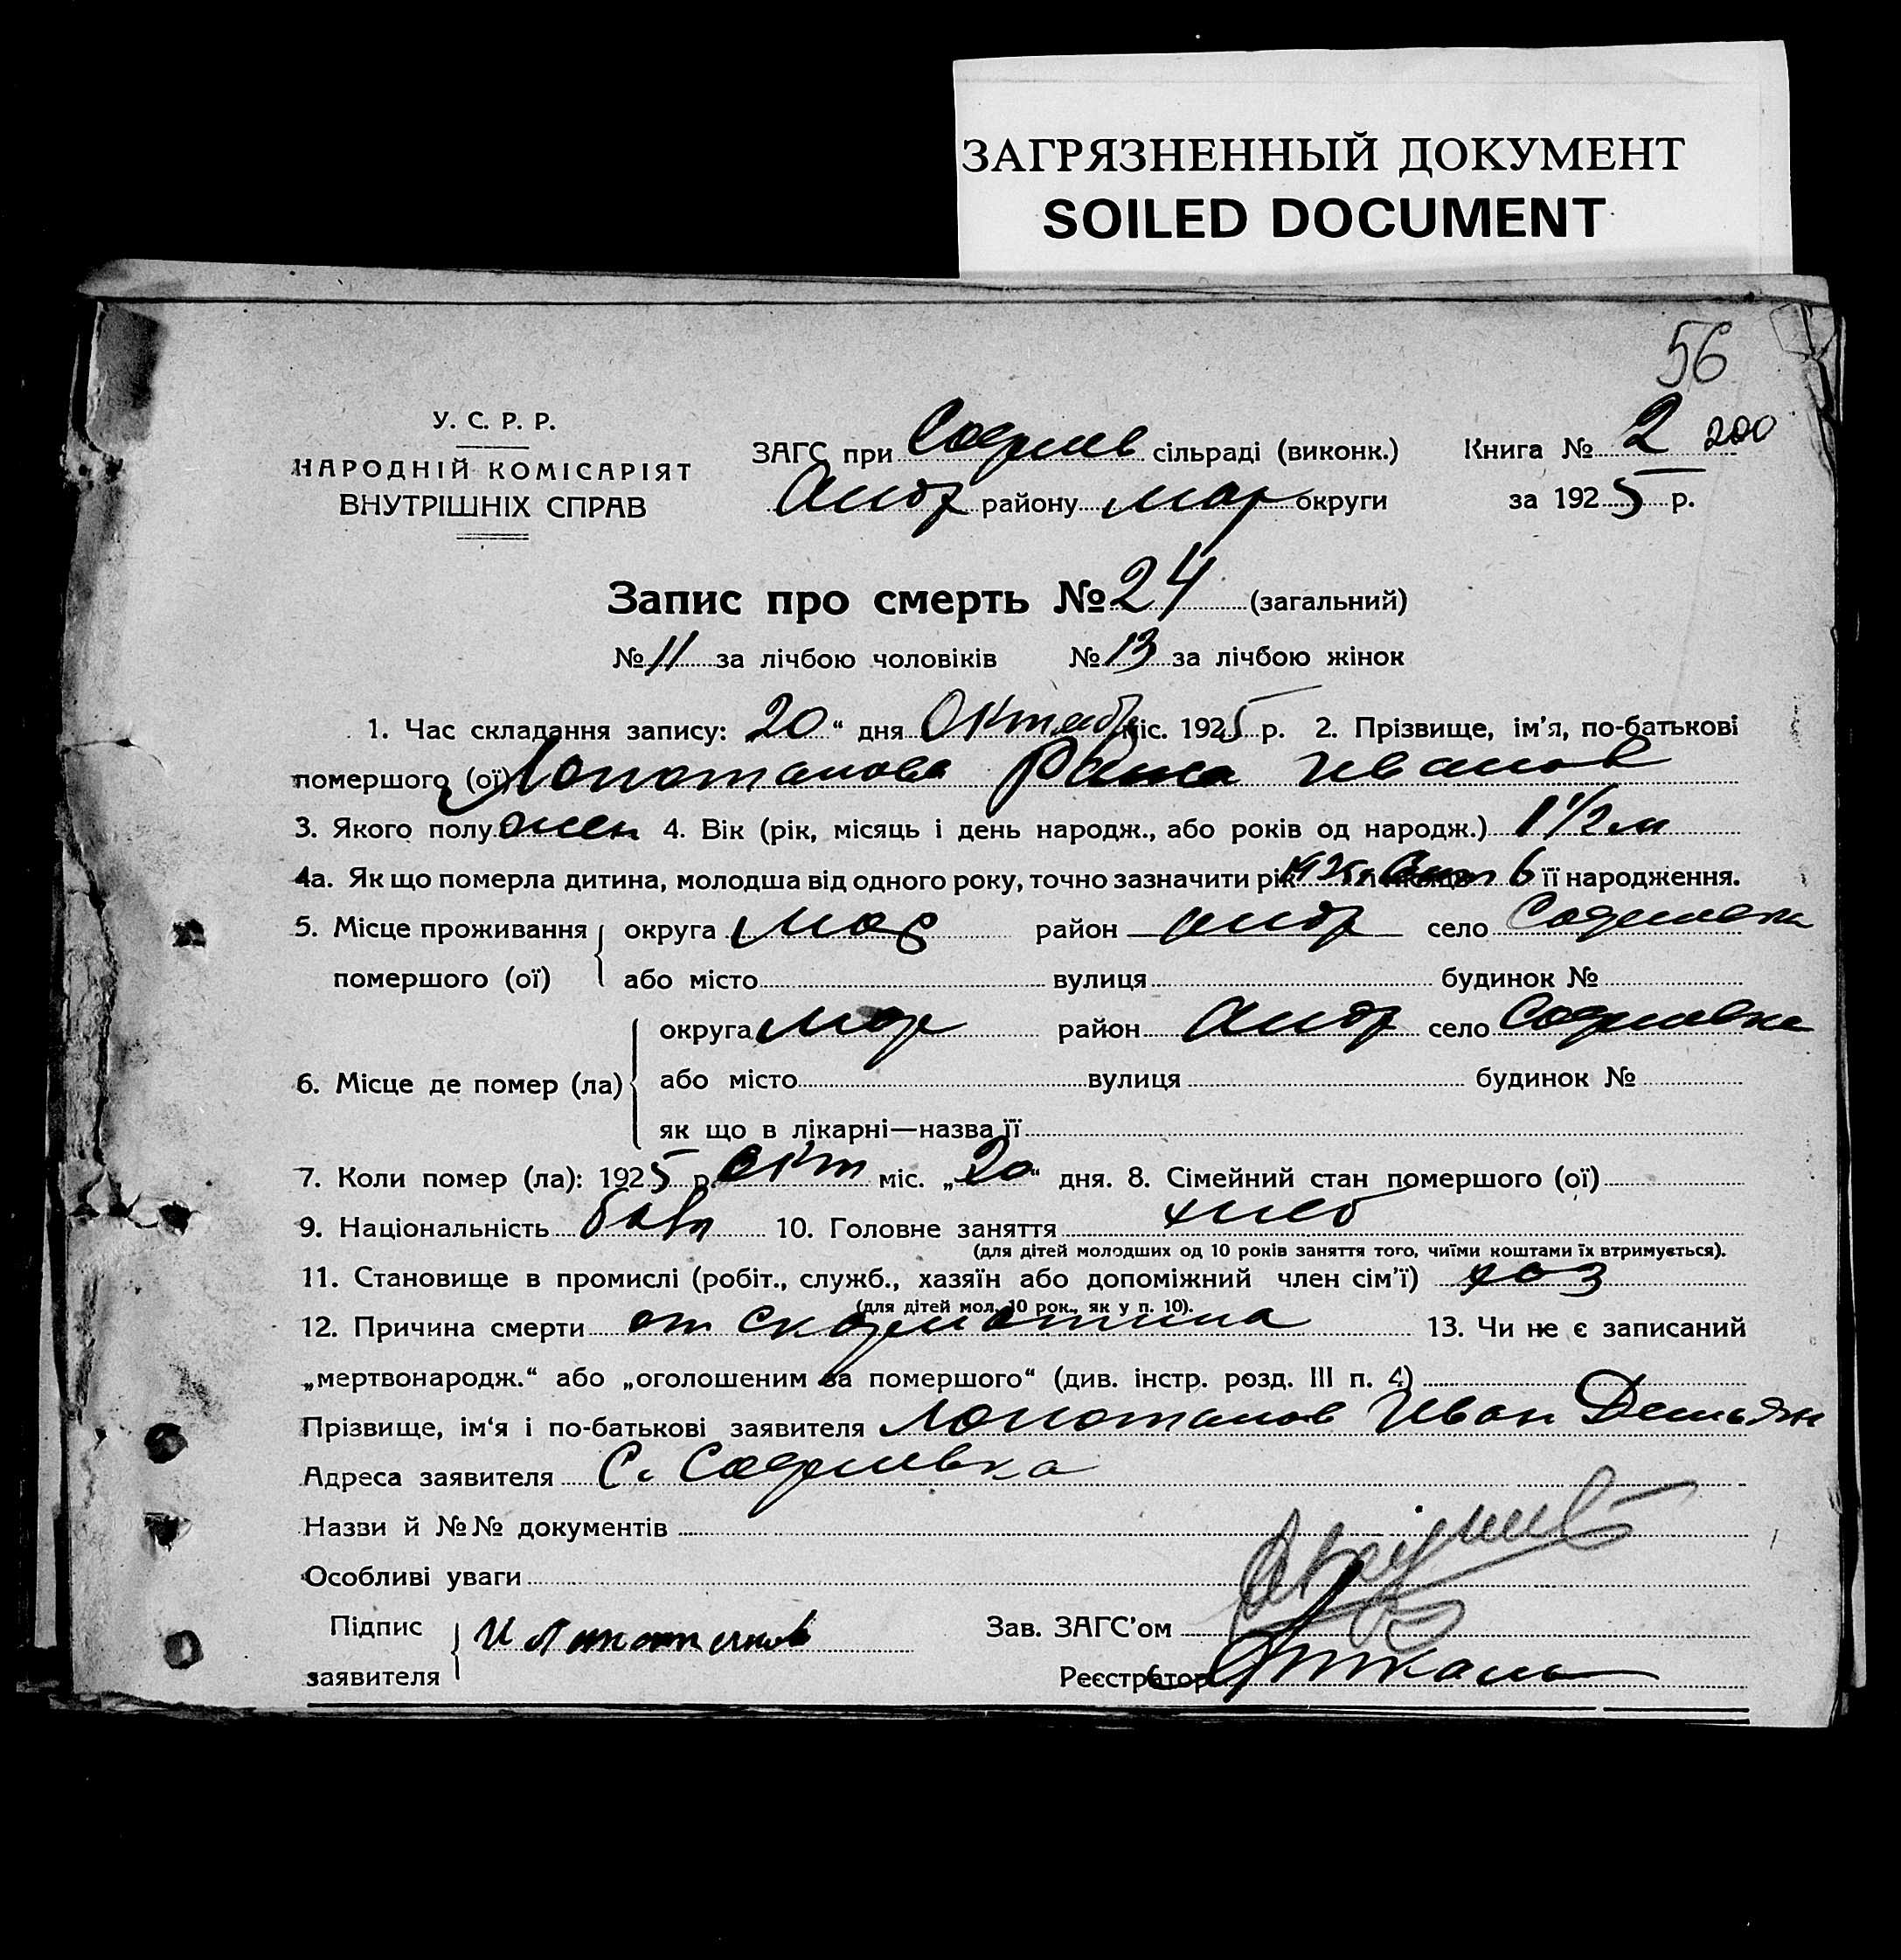 ЗАГРЯЗНЕННЫЙ ДОКУМЕНТ
SOILED DOCUMENT
56
У. С. Р. Р.
НАРОДНІЙ КОМІСАРІЯТ
ВНУТРІШНІХ СПРАВ
ЗАГС при сільраді (виконк.) Книга № 2 200
Андр району Мар округи за 1925 р.
Запис про смерть № 24 (загальний)
№ 11 за лічбою чоловіків № 13 за лічбою жінок
1. Час складання запису: 20 “ дня Октяб міс. 1925 р. 2. Прізвище, ім'я, по-батькові
помершого (ої) Лопотанова Иванов
3. Якого полу жен 4. Вік (рік, місяць і день народж., або років од народж.) 1 1/2 м
4а. Як що померла дитина, молодша від одного року, точно зазначити рік 6 її народження.
5. Місце проживання округа Мар район Андр село
помершого (ої) або місто вулиця будинок №
округа Мар район Андр село
6. Місце де помер (ла) або місто вулиця будинок №
як що в лікарні—назва її
7. Коли помер (ла): 1925 р. окт міс. „20“ дня. 8. Сімейний стан помершого (ої)
9. Національність 10. Головне заняття хлеб
(для дітей молодших од 10 років заняття того, чиїми коштами їх втримується).
11. Становище в промислі (робіт., служб., хазяїн або допоміжний член сім'ї) хоз
(для дітей мол. 10 рок., як у п. 10).
12. Причина смерти от скарлатина 13. Чи не є записаний
„мертвонародж.“ або „оголошеним за помершого“ (див. інстр. розд. III п. 4)
Прізвище, ім'я і по-батькові заявителя Лопотанов Иван Демьян
Адреса заявителя С.
Назви й №№ документів
Особливі уваги
Підпис И Лопотанов Зав. ЗАГС'ом
заявителя Реєстратор